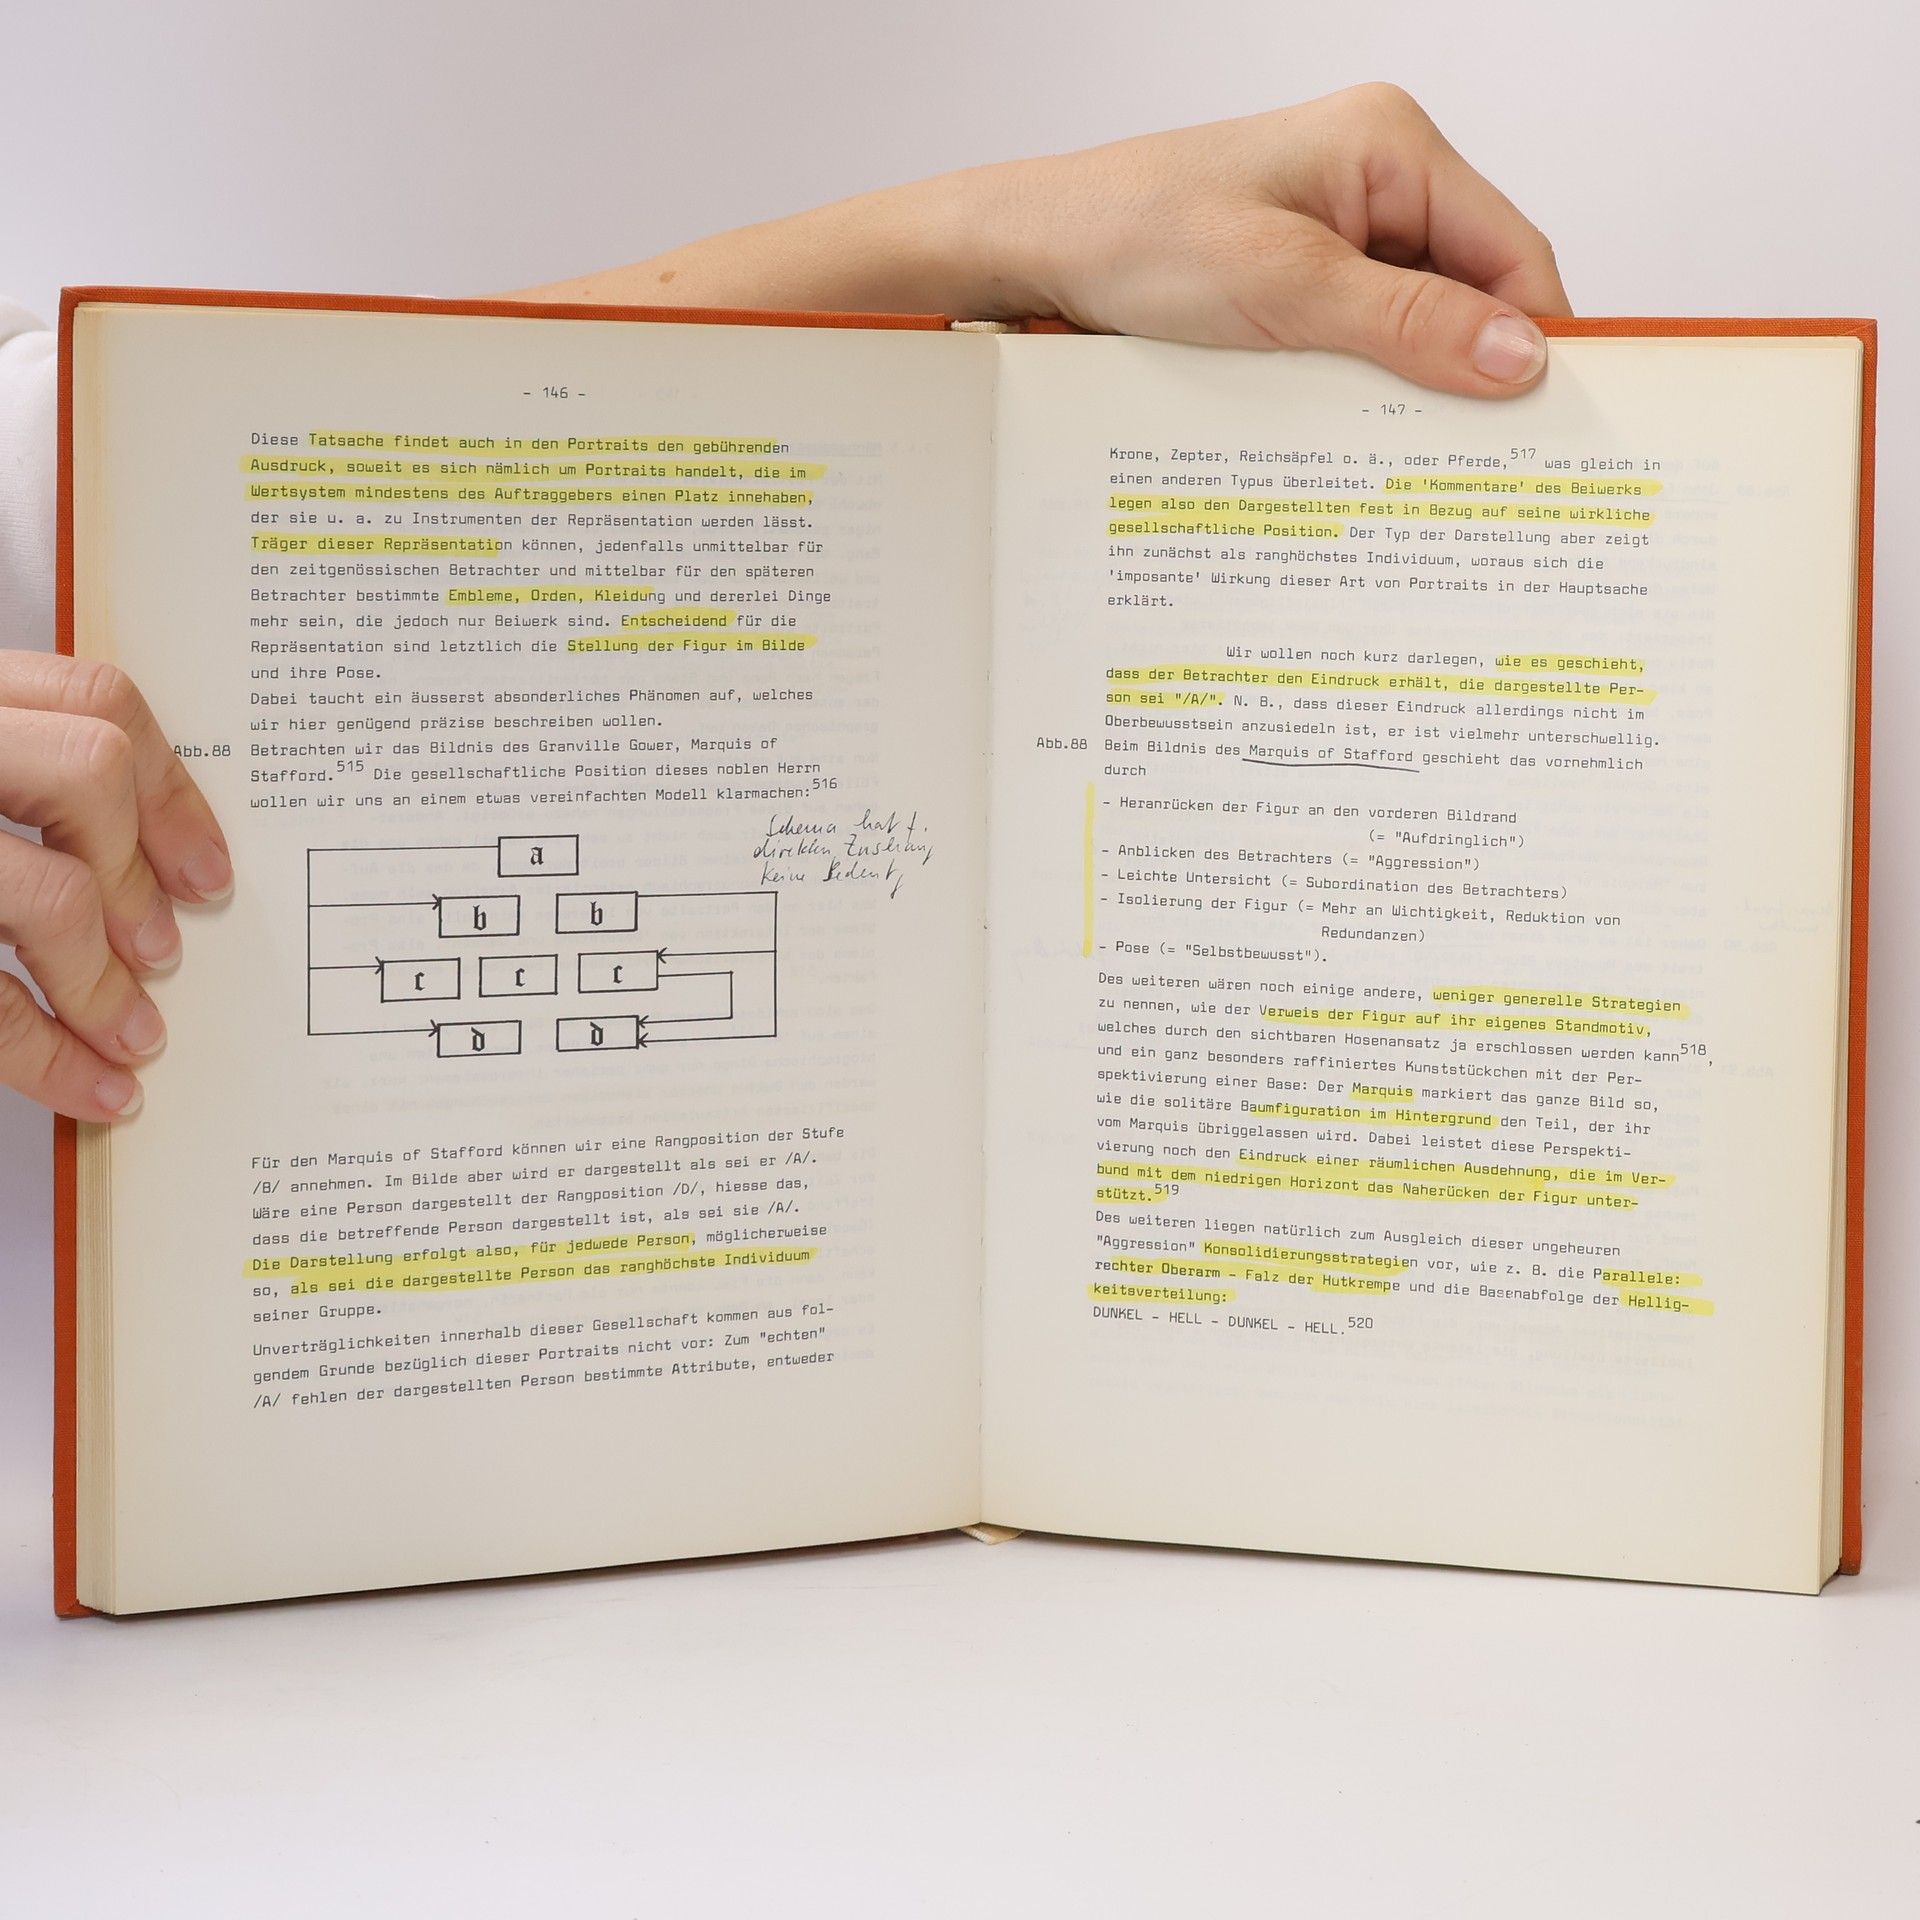 - 146 -
Diese Tatsache findet auch in den Portraits den gebührenden
Ausdruck, soweit es sich nämlich um Portraits handelt, die im
Wertsystem mindestens des Auftraggebers einen Platz innehaben,
der sie u. a. zu Instrumenten der Repräsentation werden lässt.
Träger dieser Repräsentation können, jedenfalls unmittelbar für
den zeitgenössischen Betrachter und mittelbar für den späteren
Betrachter bestimmte Embleme, Orden, Kleidung und dererlei Dinge
mehr sein, die jedoch nur Beiwerk sind. Entscheidend für die
Repräsentation sind letztlich die Stellung der Figur im Bilde
und ihre Pose.
Dabei taucht ein äusserst absonderliches Phänomen auf, welches
wir hier genügend präzise beschreiben wollen.
Abb.88 Betrachten wir das Bildnis des Granville Gower, Marquis of
Stafford.515 Die gesellschaftliche Position dieses noblen Herrn
wollen wir uns an einem etwas vereinfachten Modell klarmachen:516
Schema hat f.
direkten
keine
a
b b
c c c
d d
Für den Marquis of Stafford können wir eine Rangposition der Stufe
/B/ annehmen. Im Bilde aber wird er dargestellt als sei er /A/.
Wäre eine Person dargestellt der Rangposition /D/, hiesse das,
dass die betreffende Person dargestellt ist, als sei sie /A/.
Die Darstellung erfolgt also, für jedwede Person, möglicherweise
so, als sei die dargestellte Person das ranghöchste Individuum
seiner Gruppe.
Unverträglichkeiten innerhalb dieser Gesellschaft kommen aus fol-
gendem Grunde bezüglich dieser Portraits nicht vor: Zum "echten"
/A/ fehlen der dargestellten Person bestimmte Attribute, entweder
- 147 -
Krone, Zepter, Reichsäpfel o. ä., oder Pferde,517 was gleich in
einen anderen Typus überleitet. Die 'Kommentare' des Beiwerks
legen also den Dargestellten fest in Bezug auf seine wirkliche
gesellschaftliche Position. Der Typ der Darstellung aber zeigt
ihn zunächst als ranghöchstes Individuum, woraus sich die
'imposante' Wirkung dieser Art von Portraits in der Hauptsache
erklärt.
Wir wollen noch kurz darlegen, wie es geschieht,
dass der Betrachter den Eindruck erhält, die dargestellte Per-
son sei "/A/". N. B., dass dieser Eindruck allerdings nicht im
Oberbewusstsein anzusiedeln ist, er ist vielmehr unterschwellig.
Abb.88 Beim Bildnis des Marquis of Stafford geschieht das vornehmlich
durch
- Heranrücken der Figur an den vorderen Bildrand
(= "Aufdringlich")
- Anblicken des Betrachters (= "Aggression")
- Leichte Untersicht (= Subordination des Betrachters)
- Isolierung der Figur (= Mehr an Wichtigkeit, Reduktion von
Redundanzen)
- Pose (= "Selbstbewusst").
Des weiteren wären noch einige andere, weniger generelle Strategien
zu nennen, wie der Verweis der Figur auf ihr eigenes Standmotiv,
welches durch den sichtbaren Hosenansatz ja erschlossen werden kann518,
und ein ganz besonders raffiniertes Kunststückchen mit der Per-
spektivierung einer Base: Der Marquis markiert das ganze Bild so,
wie die solitäre Baumfiguration im Hintergrund den Teil, der ihr
vom Marquis übriggelassen wird. Dabei leistet diese Perspekti-
vierung noch den Eindruck einer räumlichen Ausdehnung, die im Ver-
bund mit dem niedrigen Horizont das Naherücken der Figur unter-
stützt.519
Des weiteren liegen natürlich zum Ausgleich dieser ungeheuren
"Aggression" Konsolidierungsstrategien vor, wie z. B. die Parallele:
rechter Oberarm - Falz der Hutkrempe und die Basenabfolge der Hellig-
keitsverteilung:
DUNKEL - HELL - DUNKEL - HELL.520